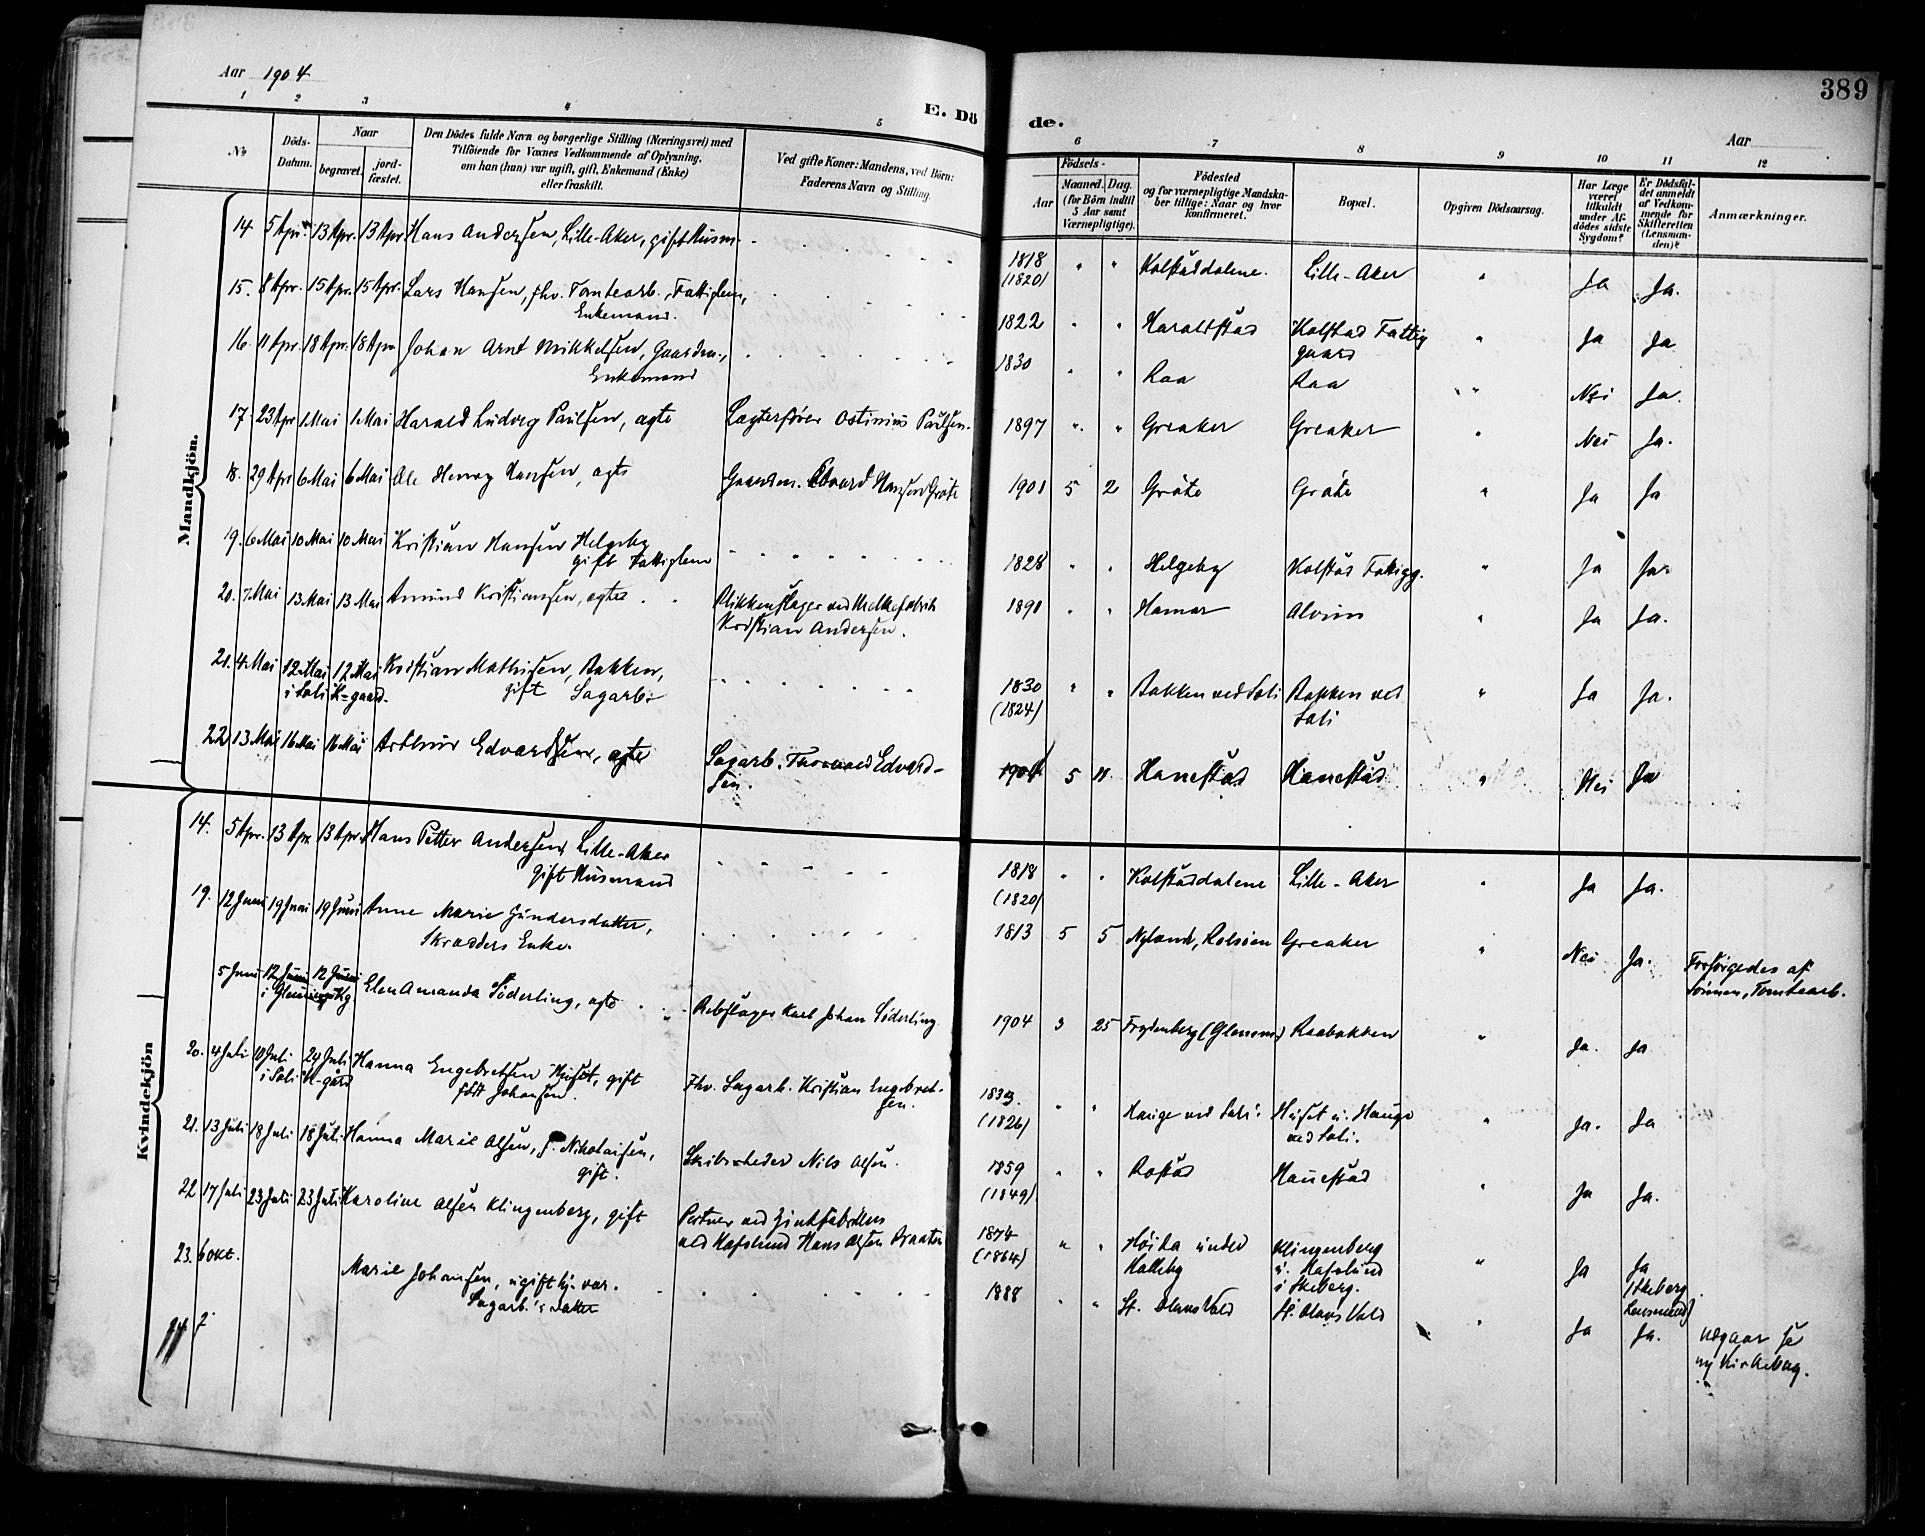 389
Aar 1904
E. Dö de.
Aar
1 2 3 4 5 6 7 8 9 10 11 12
No
Döds-Datum.
Naar
begravet.
jord-fæstet.
Den Dödes fulde Navn og borgerlige Stilling (Næringsvei) med
Tilföiende for Voxnes Vedkommende af Oplysning,
om han (hun) var ugift, gift, Enkemand (Enke)
eller fraskilt.
Ved gifte Koner: Mandens, ved Börn:
Faderens Navn og Stilling.
Födsels-
Aar
Maaned. Dag.
(for Börn indtil
5 Aar samt
Værnepligtige).
Födested
og for værnepligtige Mandska-
ber tillige: Naar og hvor
konfirmeret.
Bopæl.
Opgiven Dödsaarsag.
Har Læge
været
tilkaldt
under Af-
dödes sidste
Sygdom?
Er Dödsfal-
det anmeldt
af Vedkom-
mende for
Skifteretten
(Lensman-
den)?
Anmærkninger.
Mandkjön.
14 5 Apr. 13 Apr. 13 Apr Hans Andersen, Lille-Aker, gift Husm. 1818 " " Kolstaddalene. Lille-Aker " Ja Ja.
(1820)
15. 8 Apr. 15 Apr. 15 Apr. Lars Hansen, fhv. Tomtearb., Fattiglem, 1822 " " Haraldstad Kolstad Fattig " Ja Ja
Enkemand. gaard
16. 11 Apr. 18 Apr. 18 Apr Johan Arnt Mikkelsen, Gaardm., 1830 " " Raa Raa " Nei Ja.
Enkemand
17. 23 Apr 1 Mai 1 Mai Harald Ludvig Paulsen, ægte Lægterfører Ostinius Paulsen. 1897 " " Greaker Greaker " Nei Ja.
18. 29 Apr 6 Mai 6 Mai Ole Henry Hansen, ægte Gaardm. Edvard Hansen Gróte 1901 5 2 Gróte Gróte " Ja Ja
19. 6 Mai 10 Mai 10 Mai Kristian Hansen Helgeby 1828 " " Helgeby Kolstad Fattigg. " Ja Ja.
gift Fattiglem
20. 7 Mai 13 Mai 13 Mai Amund Kristiansen, ægte Blikkenslager ved Melkefabrik 1891 " " Hamar Alvim " Ja Ja.
Kristian Andersen.
21. 4 Mai 12 Mai 12 Mai Kristian Mathisen, Bakken, 1830 " " Bakken ved Soli Bakken ved " Ja Ja.
i Soli K-gaard. gift Sagarb. (1824) Soli
22 13 Mai 16 Mai 16 Mai Arthur Edvardsen, ægte Sagarb. Thorvald Edvard- 1904 5 11 Hanestad Hanestad " Nei Ja
sen.
Kvindekjön
14. 5 Apr. 13 Apr 13 Apr. Hans Petter Andersen, Lille-Aker 1818 " " Kolstaddalene Lille-Aker " Ja Ja.
gift Husmand (1820)
19. 12 Juni 19 Juni 19 Juni Anne Marie Gundersdatter, 1813 5 5 Nyland, Rolsöen Greaker " Nei Ja. Forsørgedes af
Skrædders Enke. Sønnen, Tomtearb.
5 Juni 12 Juni 12 Juni Elen Amanda Söderling, ægte Rebslager Karl Johan Söderling 1904 3 25 Frydenberg (Glemm.) Raabakken " Ja. Ja
i Glemminge Kg
20. 4 Juli 10 Juli 24 Juli Hanna Engebretsen Huset, gift Fhv. Sagarb. Kristian Engebret- 1833. " " Hauge ved Soli. Huset u. Hauge " Ja. Ja
i Soli K-gård født Johansen. sen. (1826) ved Soli.
21. 13 Juli 18 Juli 18 Juli Hanna Marie Olsen, f. Nikolaisen, Skibsreder Nils Olsen. 1859 " " Rostad Hanestad " Ja Ja.
gift. (1849)
22 17 Juli 23 Juli 23 Juli Karoline Olsen Klingenberg, gift Portner ved Zinkfabriken 1874 " " Höida under Klingenberg " Ja Ja
ved Hafslund Hans Olsen Braaten (1864) Halleby u. Hafslund (Skeberg
i Skeberg. Lensmand)
23. 6 Okt. Marie Johansen, ugift hj. var. 1888 " " St. Olavs Vold St. Olavs Vold " Ja Ja. Udgaar se
Sagarb.'s datter ny Kirkebog.